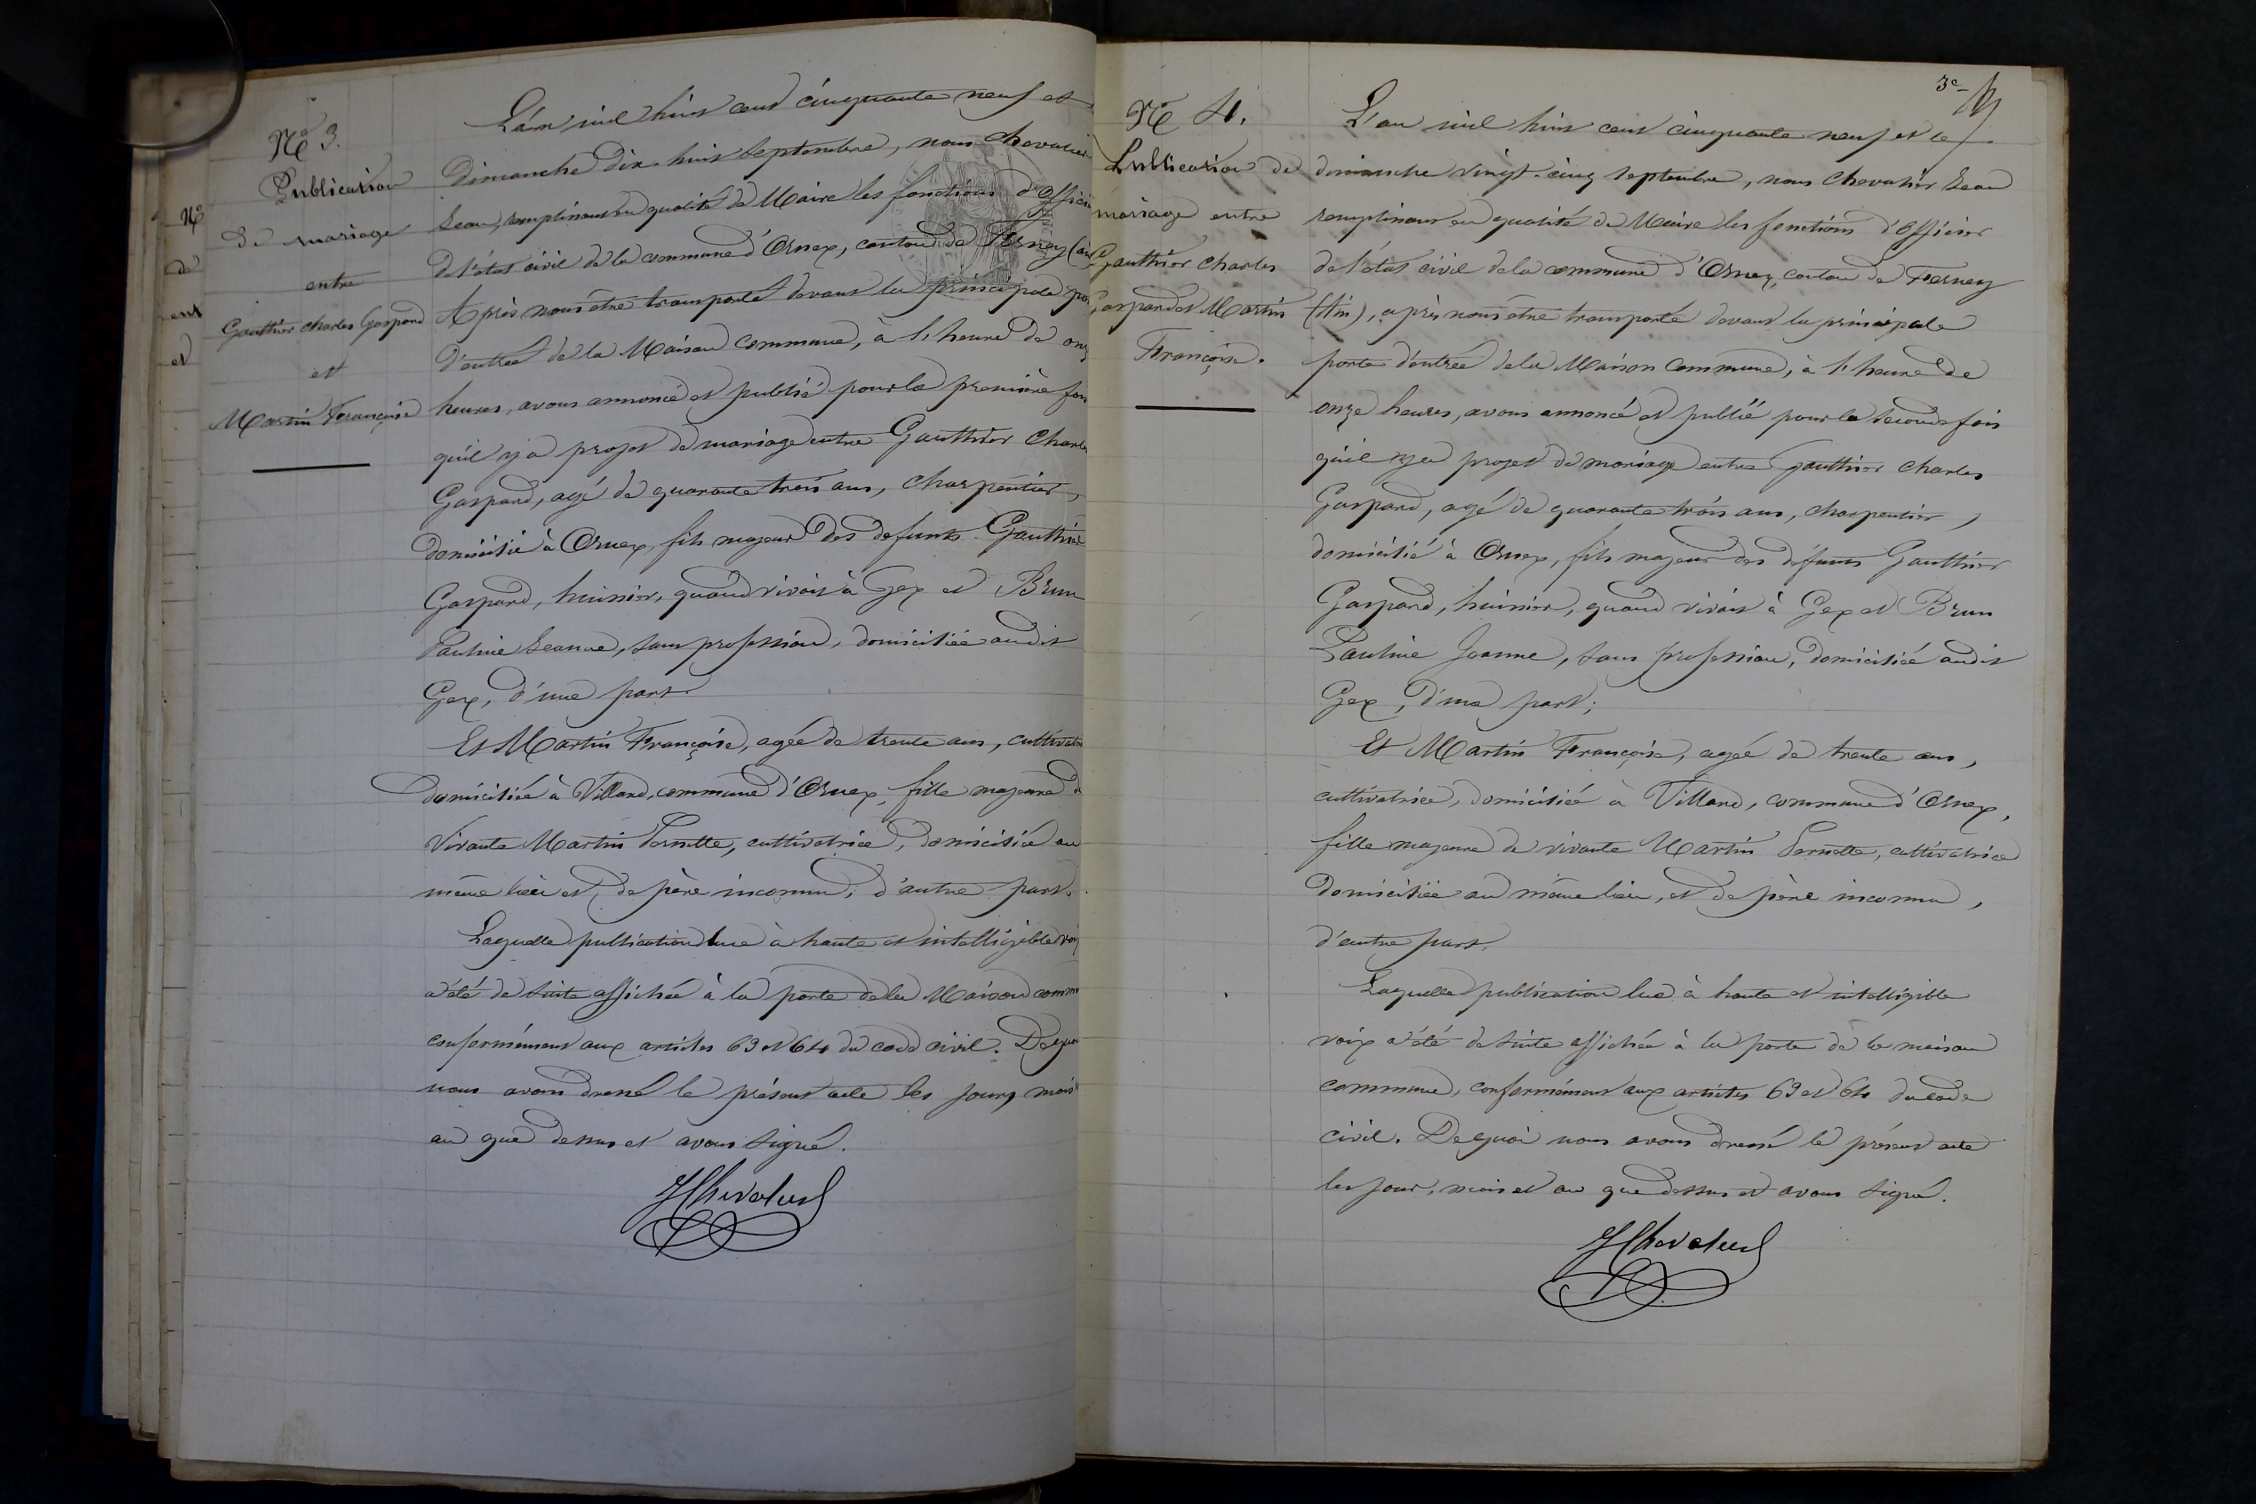 Nº 3.
Publication
de mariage
entre
Gauthier Charles Gaspard
et
Martin Françoise
L'an mil huit cent cinquante neuf et
Dimanche Dix-huit Septembre, nous Chevalier
Jean, remplissant en qualité de Maire les fonctions d'Officier
de l'état civil de la commune d'Ornex, canton de Ferney (Ain
Après nous être transporté devant la principale por
d'entrée de la Maison commune, à l'heure de onz
heures, avons annoncé et publié pour la première fois
qu'il y a projet de mariage entre Gauthier Charles
Gaspard, agé de quarante trois ans, Charpentier,
domicilié à Ornex, fils majeur des defunts Gauthier
Gaspard, huissier, quand vivait à Gex et Brun
Pauline Jeanne, sans profession, domiciliée audit
Gex, d'une part
Et Martin Françoise, agée de trente ans, cultivatri
domiciliée à Villard, commune d'Ornex, fille majeure d
vivante Martin Pernette, cultivatrice, domiciliée au
même lieu et de père inconnu, d'autre part.
Laquelle publication lue à haute et intelligible voix
a été de suite affichée à la porte de la Maison comm
conformément aux articles 63 et 64 du code civil. De quoi
nous avons dressé le présent acte les jour, mois
an que dessus et avons signé.
JChevalier
Nº
de
ent
et
3e
Nº 4.
Publication de
mariage entre
Gauthier Charles
Gaspard et Martin
Françoise.
L'an mil huit cent cinquante neuf et le
dimanche vingt-cinq septembre, nous Chevalier Jean
remplissant en qualité de Maire les fonctions d'Officier
de l'état civil de la commune d'Ornex, canton de Ferney
(Ain), après nous être transporté devant la principale
porte d'entrée de la Maison Commune, à l'heure de
onze heures, avons annoncé et publié pour la seconde fois
qu'il y a projet de mariage entre Gauthier Charles
Gaspard, agé de quarante trois ans, charpentier,
domicilié à Ornex, fils majeur des défunts Gauthier
Gaspard, huissier, quand vivait à Gex et Brun
Pauline Jeanne, sans profession, domiciliée audit
Gex, d'une part;
Et Martin Françoise, agée de trente ans,
cultivatrice, domiciliée à Villard, commune d'Ornex,
fille majeure de vivante Martin Pernette, cultivatrice
domiciliée au même lieu, et de père inconnu,
d'autre part.
Laquelle publication lue à haute et intelligible
voix a été de suite affichée à la porte de la maison
commune, conformément aux articles 63 et 64 du code
civil. De quoi nous avons dressé le présent acte
les jour, mois et an que dessus et avons signé.
JChevalier